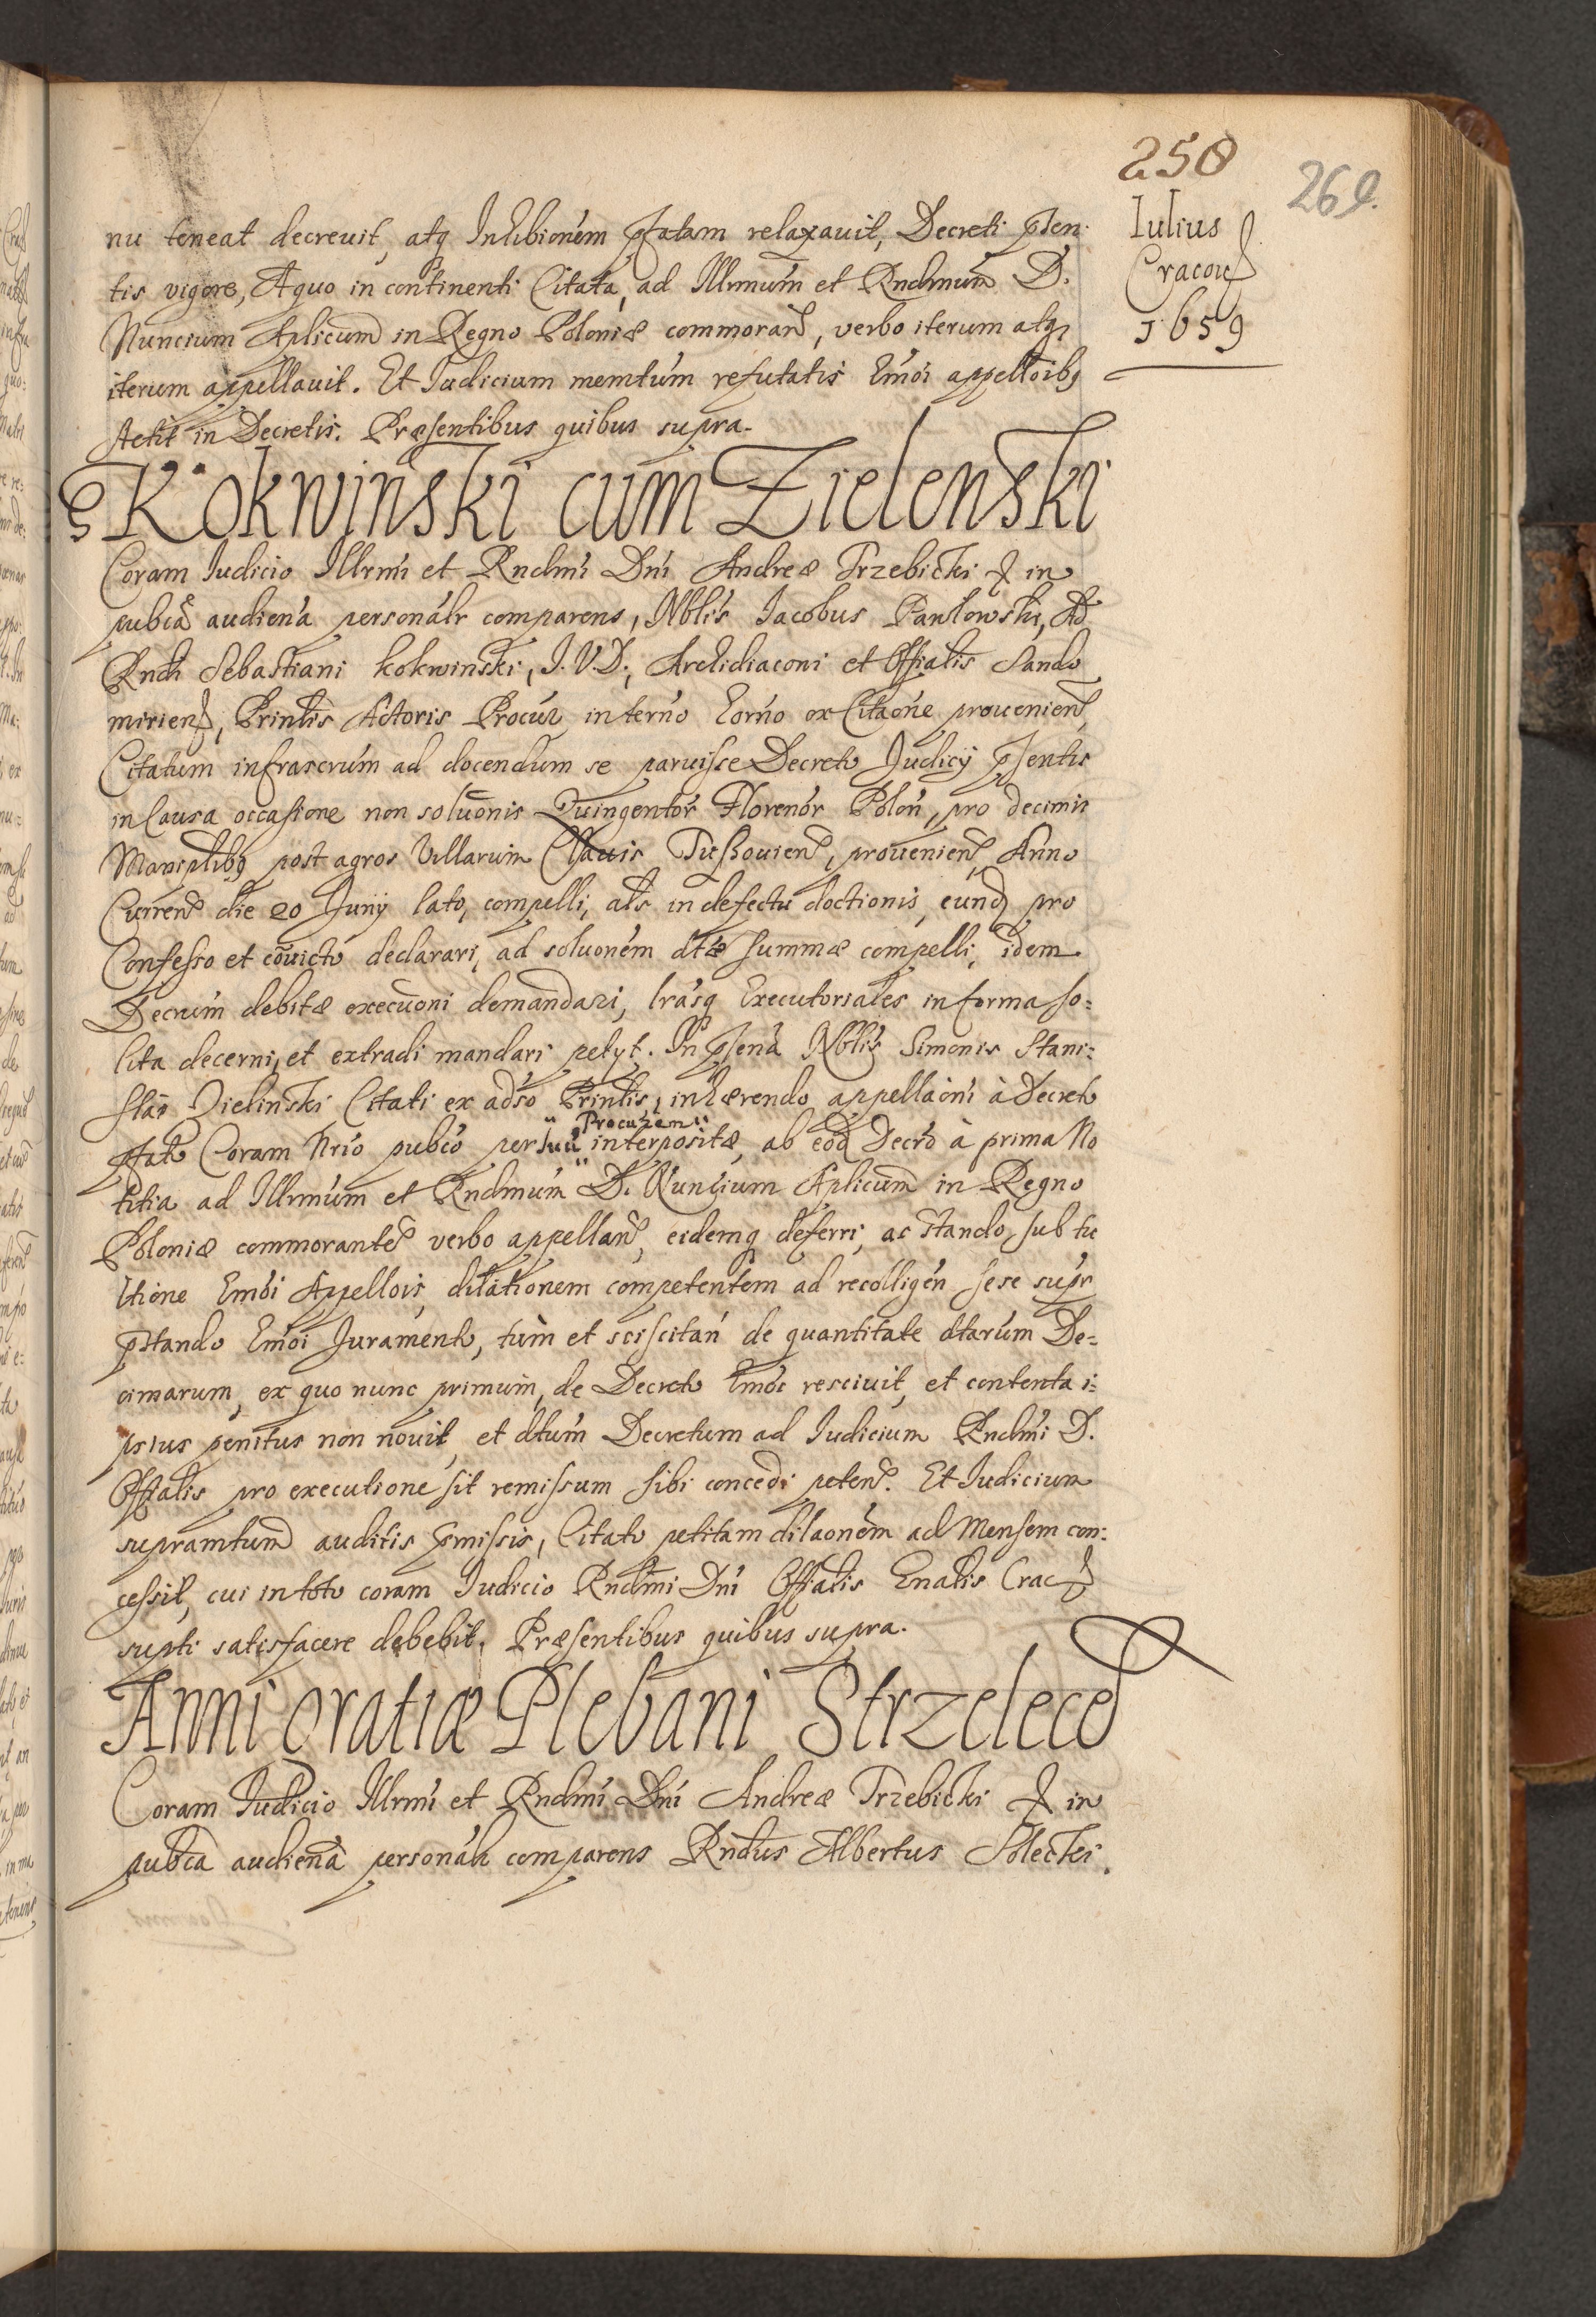 250
269.
Iulius
Cracou
1659
nu teneat decreuit, atq Inhibionem pfatam relaxauit, Decreti psen
tis vigore, A quo in continenti Citata, ad Illrmum et Rndmum D.
Nuncium Aplicum in Regno Poloniæ commoran, verbo iterum atq
iterum appellauit. Et Iudicium memtum refutatis Emoi appellõibq
stetit in Decretis. Præsentibus quibus supra.
Kokwinski cum Zielenski
Coram Iudicio Illrmi et Rndmi Dni Andreæ Trzebicki in
pubca audiena personalr comparens, Nblis Iacobus Pawłowski, Ad
Rndi Sebastiani Kokwinski, I.V.D., Archidiaconi et Offialis Sando
mirien, Prinlis Actoris Procur in terno horno ex Citaone prouenien,
Citatum infrascrum ad docendum se paruisse Decreto Judicy psentis
in Causa occasione non soluonis Quingentor Florenor Polon, pro decimis
Maniplibq post agros Villarum Clauis Tushouien, prouenien Anno
Curren die 20 Juny lato, compelli, als in defectu doctionis, eund pro
Confesso et cõuicto declarari, ad soluonem dtæ summæ compelli, idem
Decrum debitæ execuoni demandari, lrasq Executoriales in forma so:
lita decerni, et extradi mandari petyt. In psena Nblis Simonis Stani:
slai Zielinski Citati ex adso Prinlis, inhærendo appellaoni à Decreto
Procurem
pfato Coram Nrio pubco per suu interpositæ, ab eod Decro à prima No
titia ad Illrmum et Rndmum D. Nuncium Aplicum in Regno
Poloniæ commorante verbo appellan, eidemq deferri, ac stando sub tu
itione Emoi Appellois, dilationem competentem ad recolligen sese supr
pstando Emoi Juramento, tum et sciscitan de quantitate dtarum De:
cimarum, ex quo nunc primum, de Decreto Emoi resciuit, et contenta i:
psius penitus non nouit, et dtum Decretum ad Iudicium Rndmi D.
Offialis pro executione sit remissum sibi concedi peten. Et Iudicium
supramtum auditis pmissis, Citato petitam dilaonem ad Mensem con:
cessit, cui in toto coram Iudicio Rndmi Dni Offialis Gnalis Crac
supti satisfacere debebit. Præsentibus quibus supra.
Anni gratiæ Plebani Strzelece
Coram Iudicio Illrmi et Rndmi Dni Andreæ Trzebicki in
pubca audiena personalr comparens Rndus Albertus Solecki.